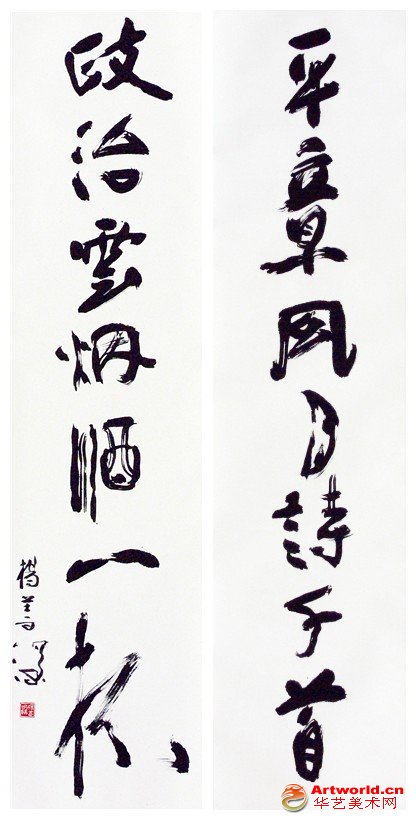 平章風月詩千首
政治雲烟酒一杯
Artworld.cn
华艺美术网